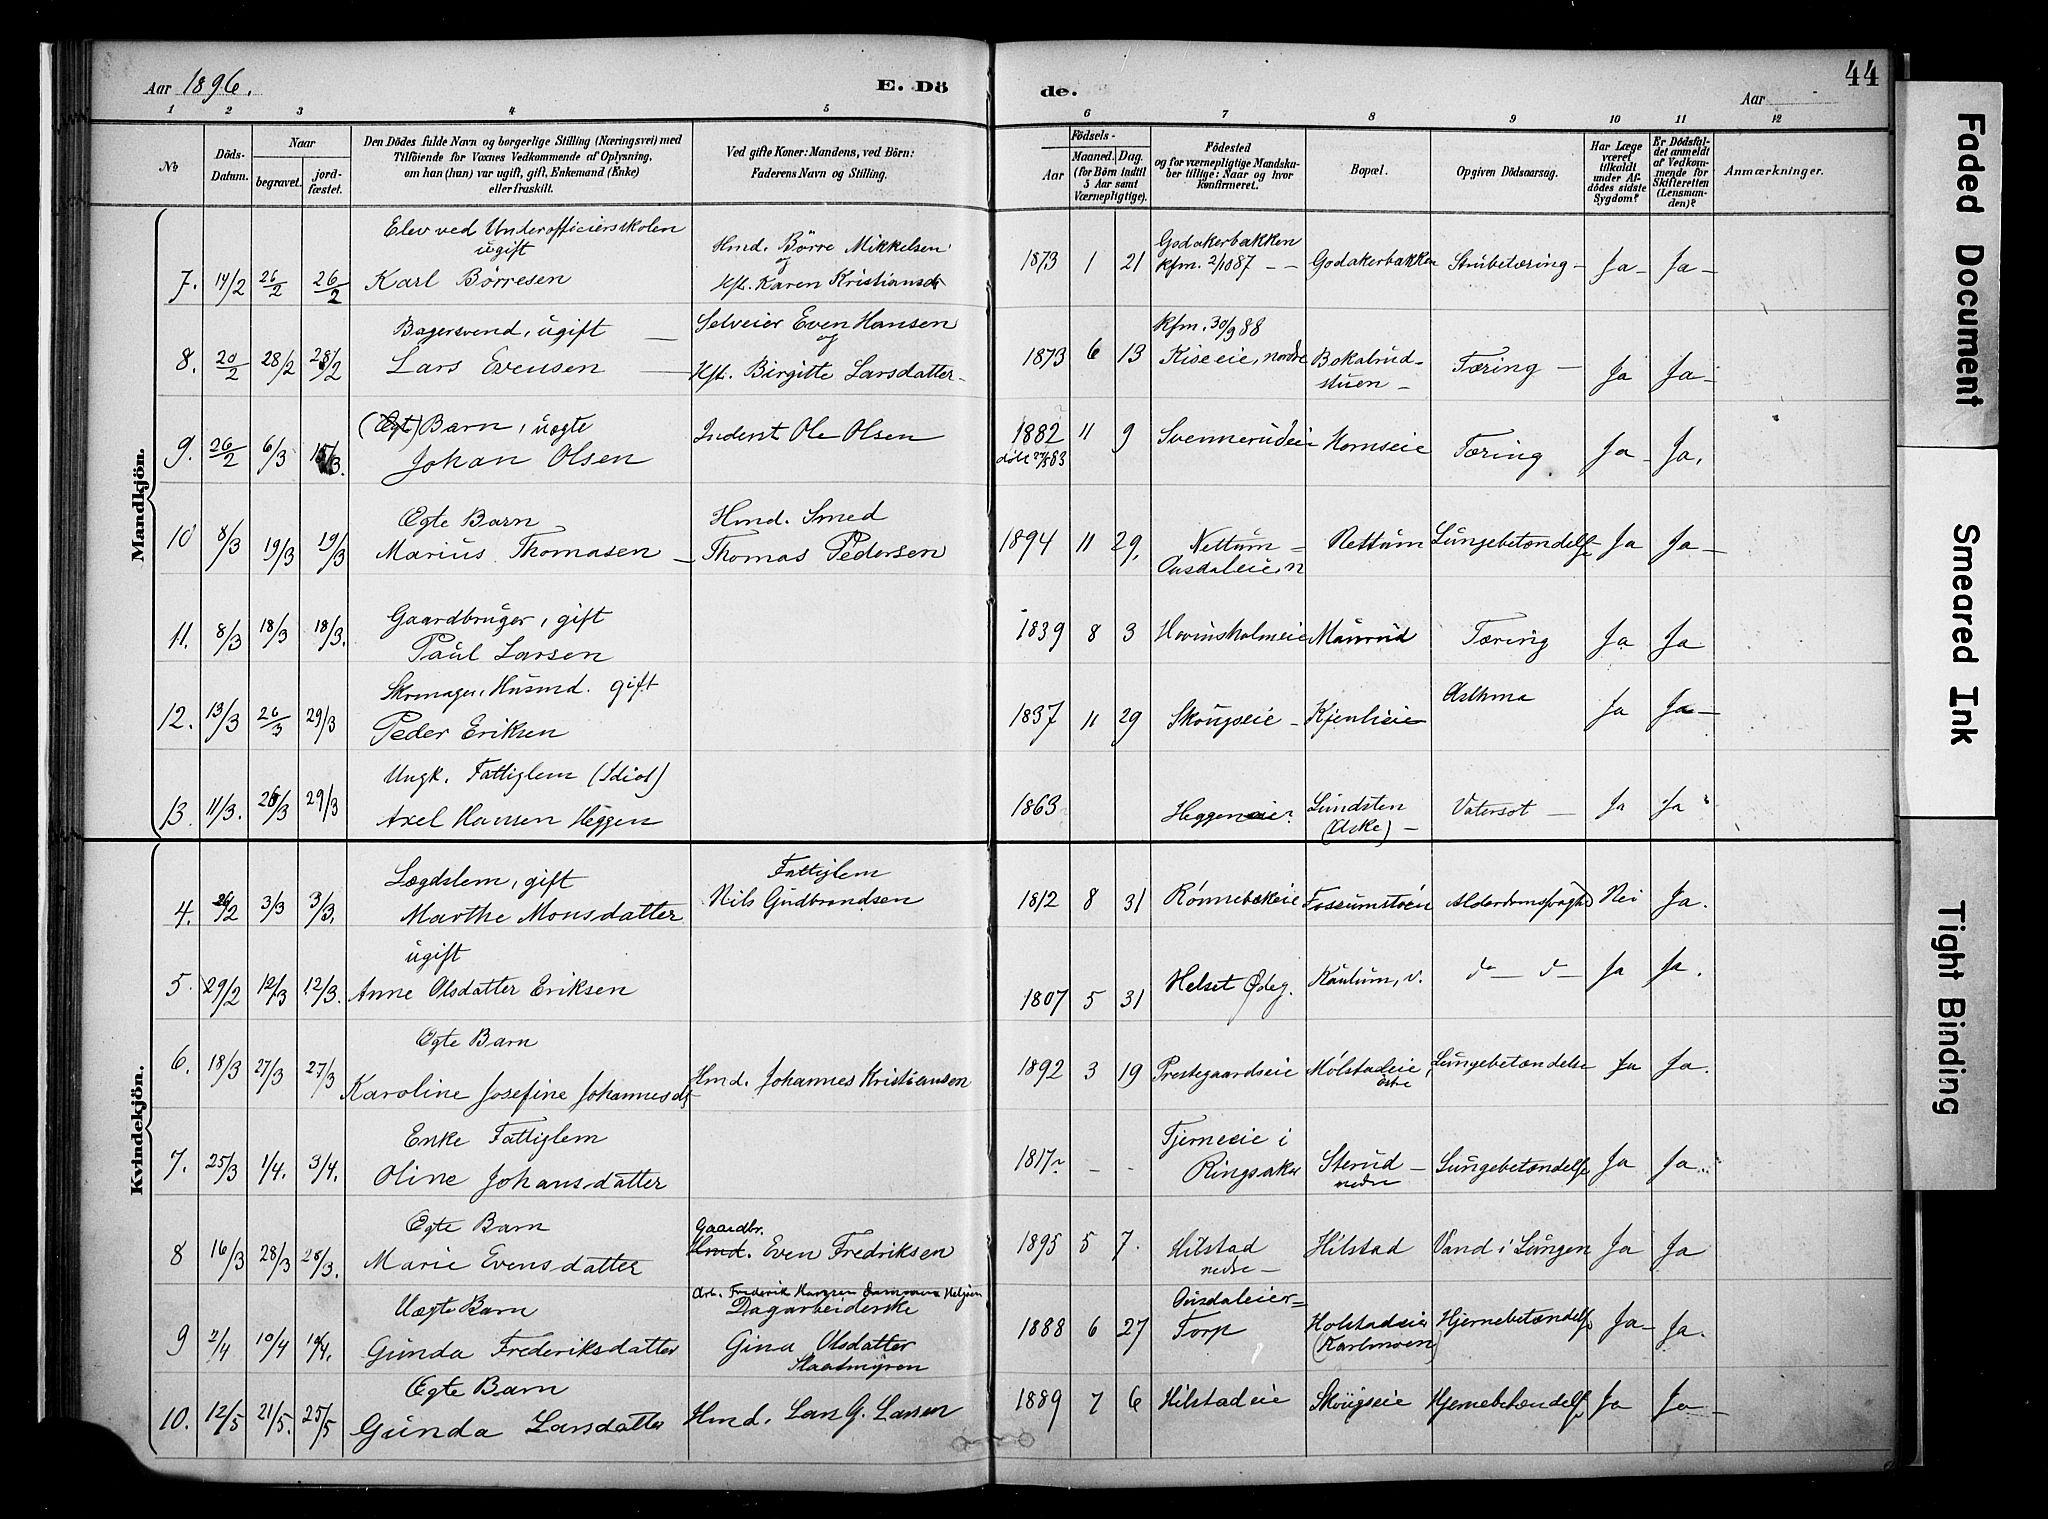 Aar 1896.
E. Dö
de.
Aar
44
1 2 3 4 5 6 7 8 9 10 11 12
No
Döds-Datum.
Naar
begravet.
jord-fæstet.
Den Dödes fulde Navn og borgerlige Stilling (Næringsvei) med
Tilföiende for Voxnes Vedkommende af Oplysning,
om han (hun) var ugift, gift, Enkemand (Enke)
eller fraskilt.
Ved gifte Koner: Mandens, ved Börn:
Faderens Navn og Stilling.
Födsels-
Aar
Maaned. Dag.
(for Börn indtil
5 Aar samt
Værnepligtige).
Födested
og for værnepligtige Mandska-
ber tillige: Naar og hvor
konfirmeret.
Bopæl.
Opgiven Dödsaarsag.
Har Læge
været
tilkaldt
under Af-
dödes sidste
Sygdom?
Er Dödsfal-
det anmeldt
af Vedkom-
mende for
Skifteretten
(Lensman-
den)?
Anmærkninger.
Mandkjön.
Elev ved Underofficiersskolen
ugift
Karl Börresen
7. 14/2 26/2 26/2
Hmd. Börre Mikkelsen
og
Kfl. Karen Kristiansd.
1873 1 21
Godakerbakken
Kfm. 2/10 87 - -
Godakerbakken
Strubetæring -
Ja - Ja -
Bagersvend, ugift -
8. 20/2 28/2 28/2 Lars Evensen -
Selveier Even Hansen
og
Kfl. Birgitte Larsdatter -
1873 6 13
Kfm. 30/9 88
Kiseeie, nordre
Bokalrud-
stuen -
Tæring -
Ja Ja -
(Egt) Barn, uægte
9. 26/2 6/3 15/3. Johan Olsen
Inderst Ole Olsen
1882 11 9
Svennerudeie
Hornseie
Tæring
Ja - Ja.
Egte Barn
10 8/3 19/3 19/3 Marius Thomasen -
Hmd. Smed
Thomas Pedersen
1894 11 29.
Nettum -
Rettum
Lungebetændelse
Ja Ja -
Gaardbruger, gift
11. 8/3 18/3 18/3. Paul Larsen
1839 8 3
Hovinsholmeie
Maurud
Tæring
Ja Ja
Skomager, Husmd. gift
12. 13/3 26/3 29/3 Peder Eriksen
1837 11 29
Skougseie -
Kjenlieie
Asthma
Ja Ja -
Ungk. Fattiglem (Idiot)
13. 11/3. 26/3 29/3 Axel Hansen Heggen
1863
Heggeneie?
Lundsten
Vatersot -
Ja Ja
Kvindekjön.
Lægdslem, gift
4. 26/2 3/3 3/3. Marthe Monsdatter
Fattiglem
Nils Gudbrandsen
1812 8 31
Rönnebekeie
Fossumstuen
Nei Ja.
ugift
5. 29/2 12/3 12/3. Anne Olsdatter Eriksen
1807 5 31
Helset Ødeg.
Kaulum, v.
do - do -
Ja Ja.
Egte Barn
6. 18/3 27/3 27/3 Karoline Josefine Johannesdt.
Hmd. Johannes Kristiansen
1892 3 19
Prestegaardseie
Mölstadeie,
östre
Lungebetændelse
Ja Ja.
Enke Fattiglem
7. 25/3 1/4. 3/4. Oline Johansdatter
1817? - -
Tjerneeie i
Ringsaker
Sterud -
nedre
Lungebetændelse
Ja Ja
Egte Barn
8 16/3 28/3 28/3. Marie Evensdatter
Gaardbr.
Hmd. Even Fredriksen
1895 5 7.
Hilstad
nedre -
Hilstad
Vand i Lungen
Ja Ja
Uægte Barn
9 2/4 10/4 10/4. Gunda Frederiksdatter
Dagarbeiderske
Gina Olsdatter
1888 6 27
Torp
Holstadeie
(Karlmoen)
Hjernebetændelse
Ja - Ja.
Egte Barn
10. 12/5 21/5. 25/5 Gunda Larsdatter
Hmd. Lars G. Larsen
1889 7 6
Hilstadeie
Skougseie
Hjernebetændelse
Ja Ja -
Faded Document
Smeared Ink
Tight Binding